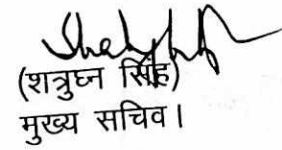 (शत्रुघ्न सिंह)
मुख्य सचिव।